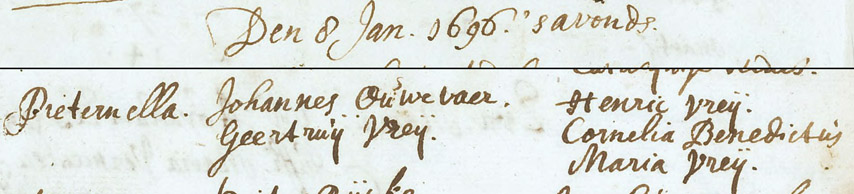 Den 8 Jan. 1696. 's avonds.
Pieternella. Johannes Ouwevaer. Henric Vreij.
Geertruij Vreij. Cornelia Benedictus
Maria Vreij.